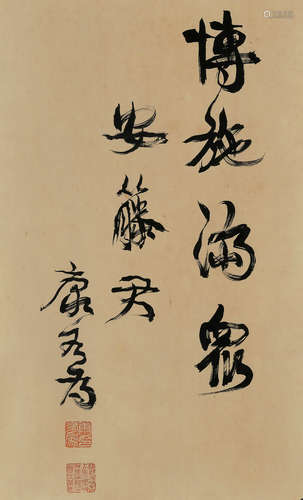 博施濟眾
安籐君
康有為